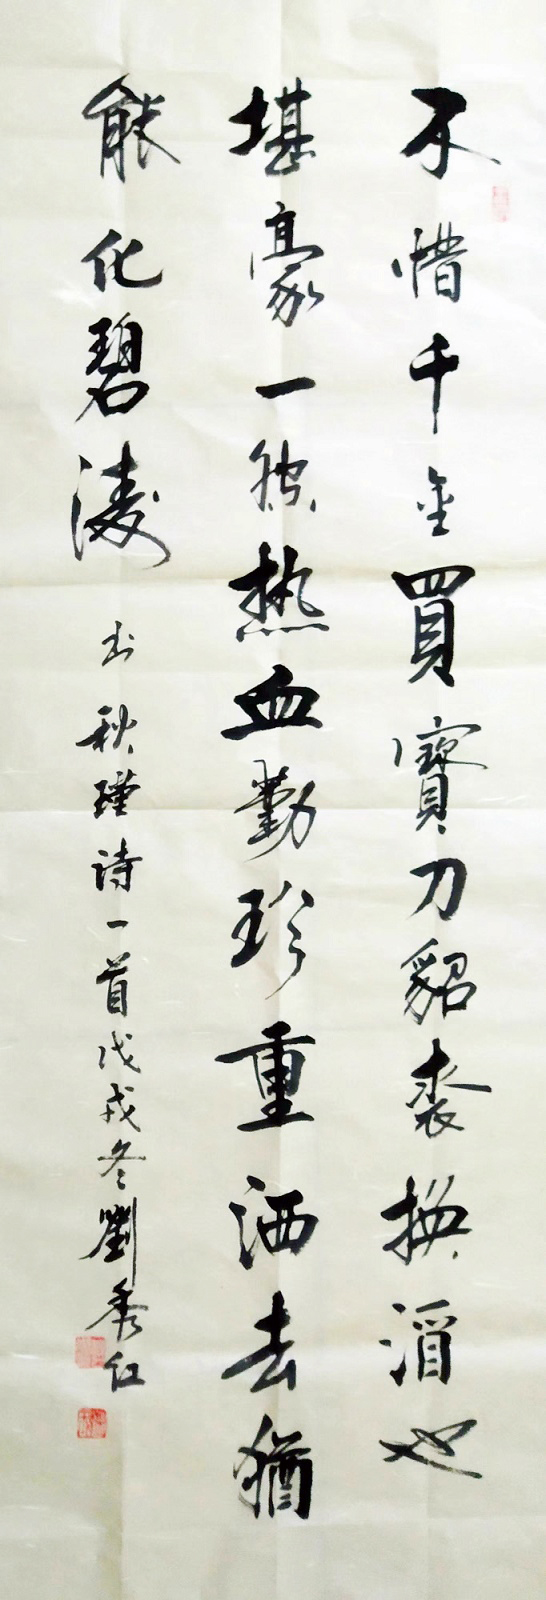 不惜千金買寶刀貂裘換酒也
堪豪一腔热血勤珍重洒去猶
能化碧涛
书秋瑾诗一首戊戌冬劉秀红